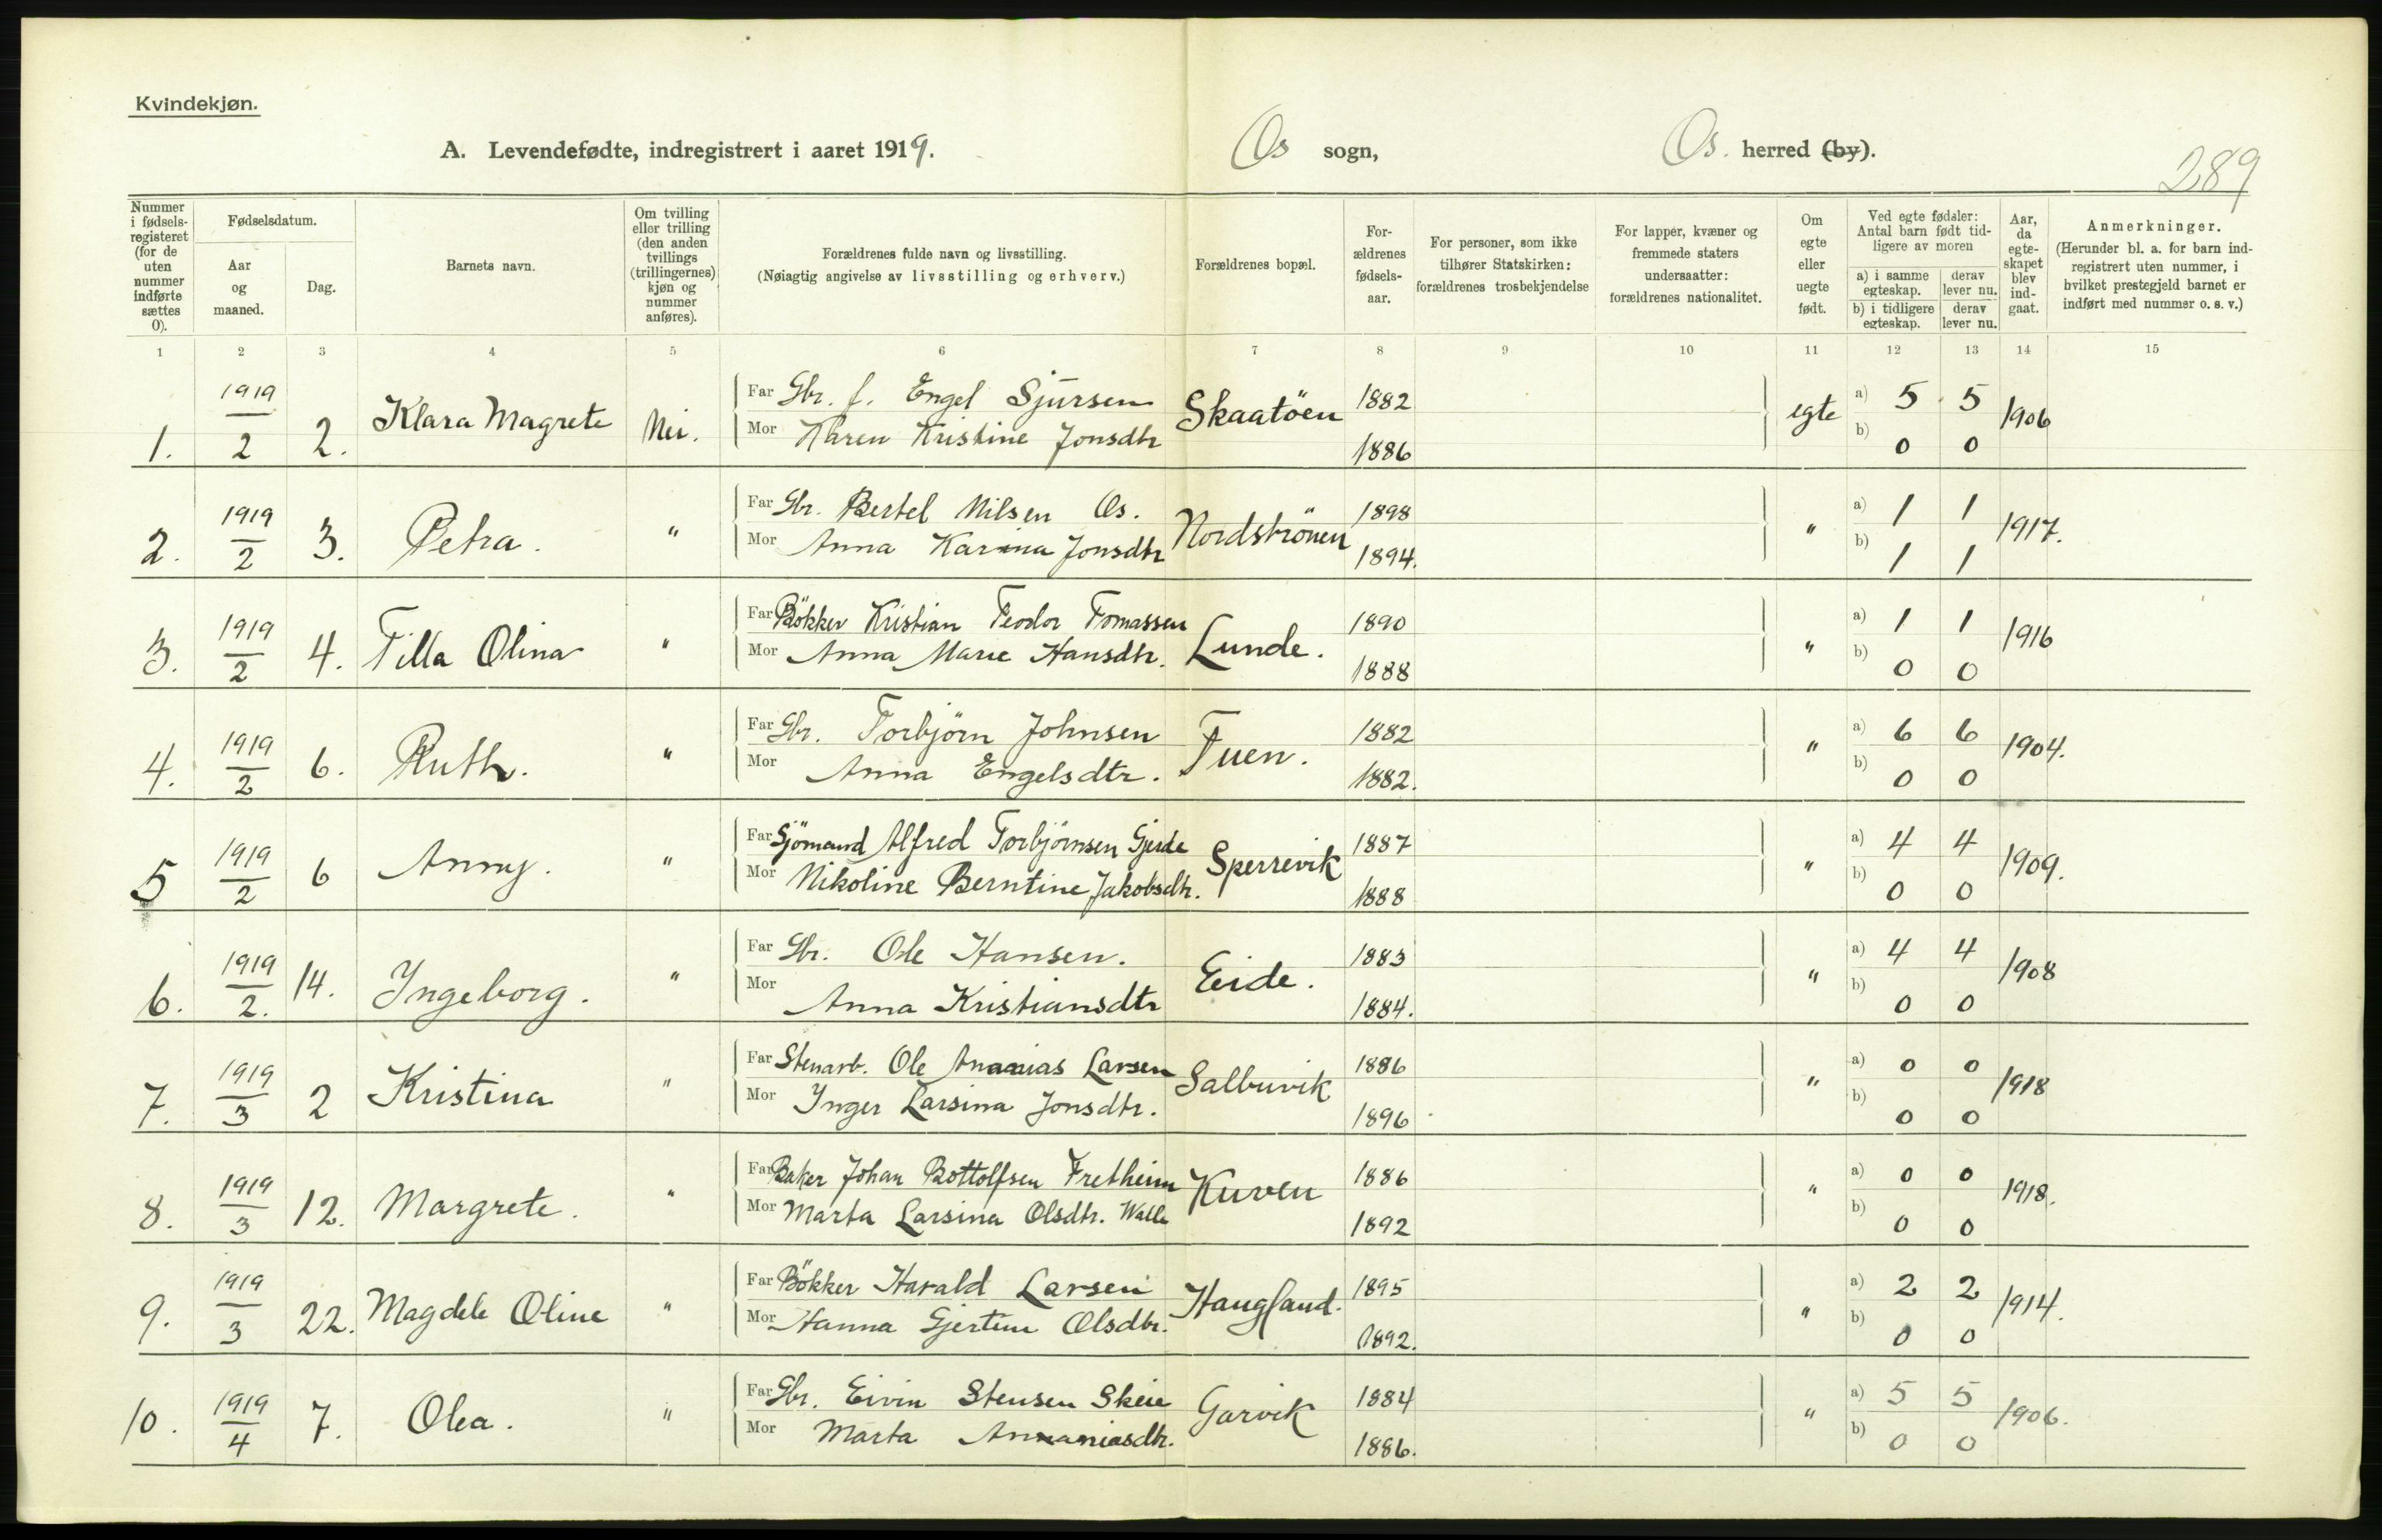 Kvindekjøn.
A. Levendefødte, indregistrert i aaret 1919. Os sogn, Os. herred (by).
289
Nummer i fødsels-registeret (for de uten nummer indførte sættes 0). Fødselsdatum. Aar og maaned. Dag. Barnets navn. Om tvilling eller trilling (den anden tvillings (trillingernes) kjøn og nummer anføres). Forældrenes fulde navn og livsstilling. (Nøiagtig angivelse av livsstilling og erhverv.) Forældrenes bopæl. For-ældrenes fødsels-aar. For personer, som ikke tilhører Statskirken: forældrenes trosbekjendelse For lapper, kvæner og fremmede staters undersaatter: forældrenes nationalitet. Om egte eller uegte født. Ved egte fødsler: Antal barn født tid-ligere av moren a) i samme egteskap. derav lever nu. b) i tidligere egteskap. derav lever nu. Aar, da egte-skapet blev ind-gaat. Anmerkninger. (Herunder bl. a. for barn ind-registrert uten nummer, i hvilket prestegjeld barnet er indført med nummer o. s. v.)
1 2 3 4 5 6 7 8 9 10 11 12 13 14 15
1. 1919/2 2. Klara Magrete Nei. Far Gbr. f. Engel Sjursen Skaatöen 1882 egte a) 5 5 1906
Mor Karen Kristine Jonsdtr 1886 b) 0 0
2. 1919/2 3. Petra. " Far Gbr. Bertel Nilsen Os. Nordströnen 1898 " a) 1 1 1917.
Mor Anna Karina Jonsdtr 1894. b) 1 1
3. 1919/2 4. Tilla Olina " Far Bökker Kristian Teodor Tomassen Lunde. 1890 " a) 1 1 1916
Mor Anna Marie Hansdtr. 1888 b) 0 0
4. 1919/2 6. Ruth. " Far Gbr. Torbjörn Johnsen Tuen. 1882 " a) 6 6 1904.
Mor Anna Engelsdtr. 1882. b) 0 0
5 1919/2 6 Anny. " Far Sjömand Alfred Torbjörnsen Gjerde Sperrevik 1887 " a) 4 4 1909.
Mor Nikoline Berntine Jakobsdtr. 1888 b) 0 0
6. 1919/2. 14. Ingeborg. " Far Gbr. Ole Hansen. Eide. 1883 " a) 4 4 1908
Mor Anna Kristiansdtr 1884. b) 0 0
7. 1919/3 2 Kristina " Far Stenarb. Ole Ananias Larsen Salbuvik 1886 " a) 0 0 1918
Mor Inger Larsina Jonsdtr. 1896 b) 0 0
8. 1919/3 12. Margrete. " Far Baker Johan Bottolfsen Fretheim Kuven 1886 " a) 0 0 1918.
Mor Marta Larsina Olsdtr. Walle 1892 b) 0 0
9. 1919/3 22. Magdele Oline " Far Bökker Harald Larsen Haugland. 1895 " a) 2 2 1914.
Mor Hanna Gjertine Olsdtr. 1892. b) 0 0
10. 1919/4 7. Olea. " Far Gbr. Eivin Stensen Skeie Garvik 1884 " a) 5 5 1906.
Mor Marta Annaniasdtr. 1886. b) 0 0